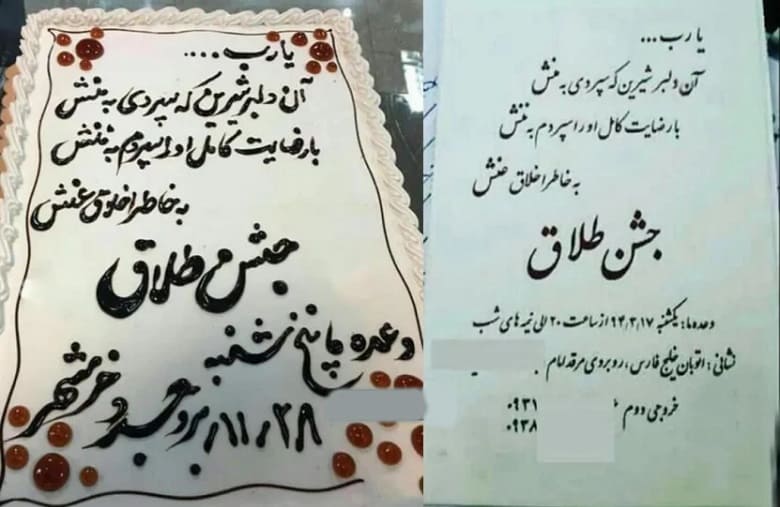 یا رب ....
آن دلبر شیرین که سپردی به منش
با رضایت کامل او را سپردم به ننش
به خاطر اخلاق عنش
جشن طلاق
وعده ما پنج شنبه
۱۱/۲۸/ بروجرد خرمشهر
یا رب...
آن دلبر شیرین که سپردی به منش
با رضایت کامل او را سپردم به ننش
به خاطر اخلاق عنش
جشن طلاق
وعده ما: یکشنبه ۹۴,۳,۱۷ از ساعت ۲۰ الی نیمه های شب
نشانی: اتوبان خلیج فارس، روبروی مرقد امام
خروجی دوم
۰۹۳۱
۰۹۳۸